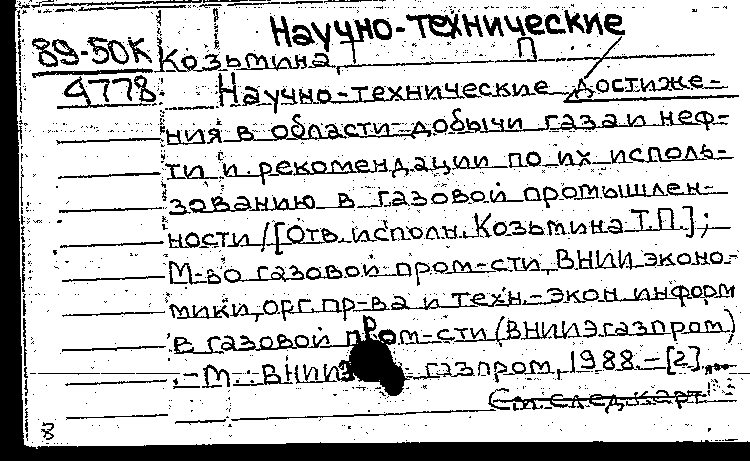 Научно-технические
89-50К Козьмина, Т П
9778 Научно-технические достиже-
ния в области добычи газа и неф-
ти и рекомендации по их исполь-
зованию в газовой промышлен-
ности / [Отв. исполн. Козьмина Т.П.];
М-во газовой пром-сти, ВНИИ эконо-
мики, орг. пр-ва и техн.-экон. информ
в газовой пром-сти (ВНИИЭгазпром)
.-М.: ВНИИЭ газпром, 1988.-[2]...
См. след. карт
8